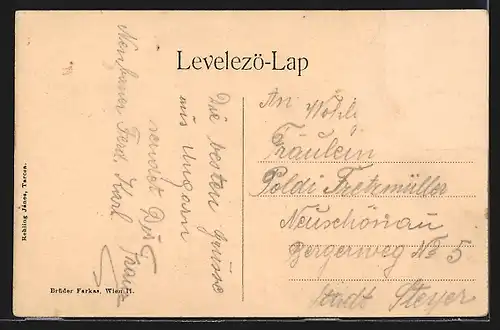 Levelezö-Lap
Die besten Grüsse
aus Ungarn
sendet Dir
Franz
Neubauer Ferd. Karl
An Wohl.
Fräulein
Poldi Fretzmüller
Neuschönau
Bergerweg No 5
Stadt Steyer
Rehling János, Tarcsa.
Brüder Farkas, Wien II.